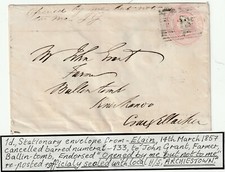 Opened by me
but not to me
Mr John Grant
Farmer
Ballin-tomb
Knockando
Craigellachie
1d, Stationary envelope from - Elgin, 14th March 1857
cancelled barred numeral - 133, to John Grant, Farmer,
Ballin-tomb, Endorsed "Opened by me but not to me"
re-posted officialy sealed with local H/S, ARCHIESTOWN.